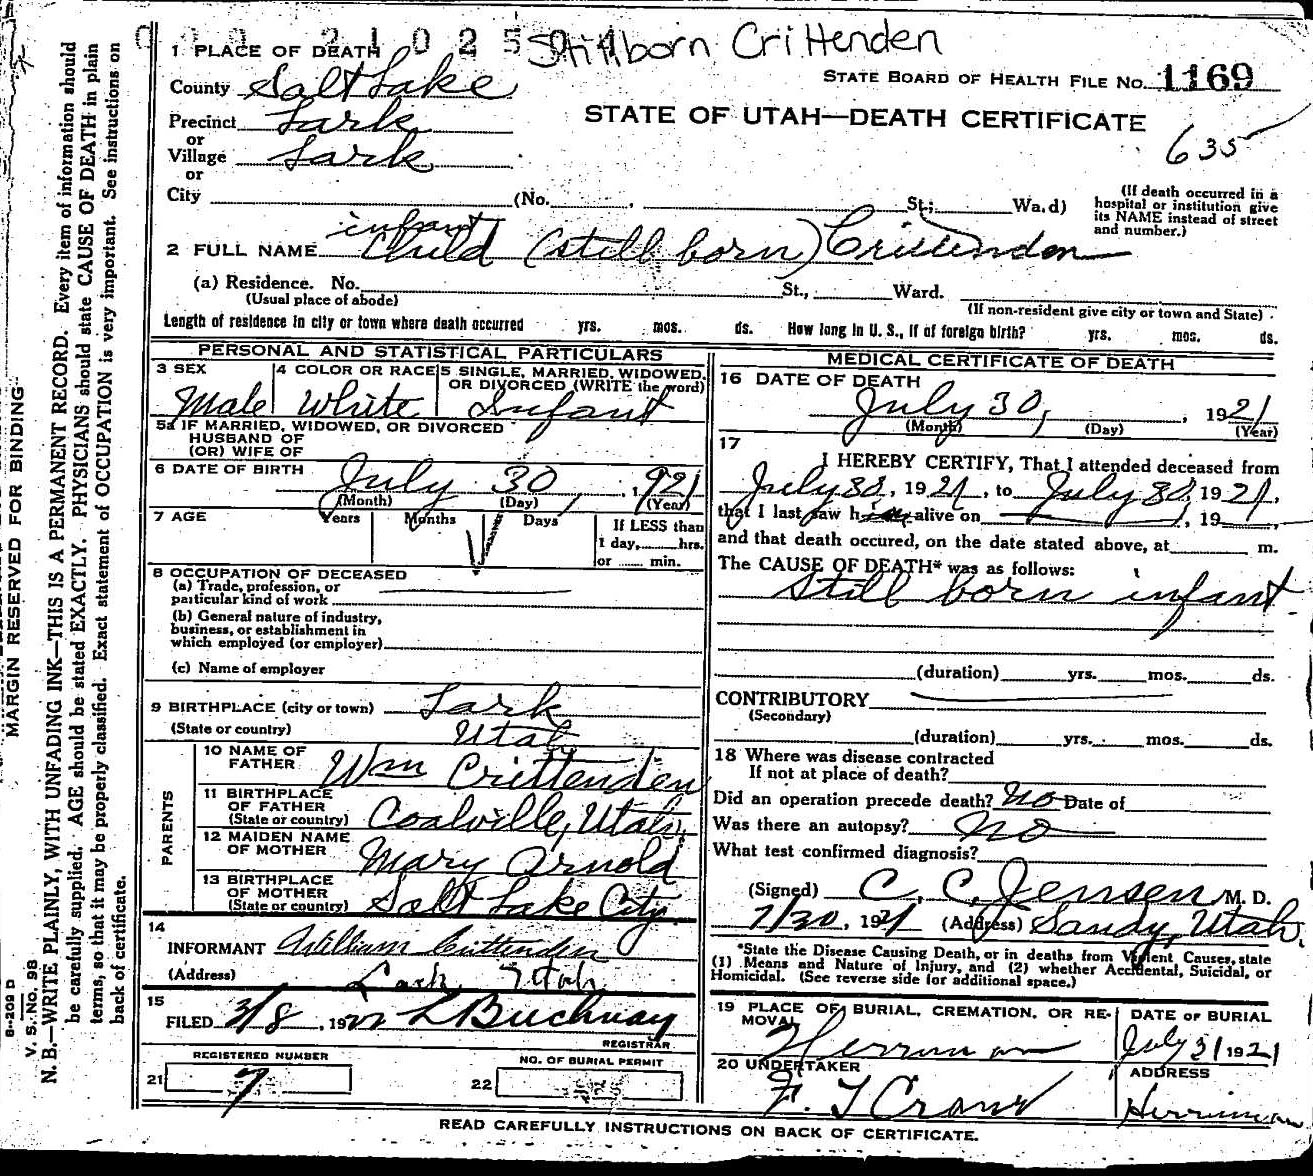 Stillborn Crittenden
1 PLACE OF DEATH
STATE BOARD OF HEALTH FILE No. 1169
County Salt Lake
STATE OF UTAH—DEATH CERTIFICATE
635
Precinct Lark
or
Village Lark
or
City (No. , St.; Wa.d)
(If death occurred in a
hospital or institution give
its NAME instead of street
and number.)
infant
2 FULL NAME Child (still born) Crittenden
(a) Residence. No. St., Ward.
(Usual place of abode)
(If non-resident give city or town and State)
Length of residence in city or town where death occurred yrs. mos. ds. How long in U. S., if of foreign birth? yrs. mos. ds.
PERSONAL AND STATISTICAL PARTICULARS
3 SEX
4 COLOR OR RACE
5 SINGLE, MARRIED, WIDOWED,
OR DIVORCED (WRITE the word)
Male White Infant
5a IF MARRIED, WIDOWED, OR DIVORCED
HUSBAND OF
(OR) WIFE OF
6 DATE OF BIRTH July 30, 1921
(Month) (Day) (Year)
7 AGE Years Months Days
If LESS than
1 day, hrs.
or min.
8 OCCUPATION OF DECEASED
(a) Trade, profession, or
particular kind of work
(b) General nature of industry,
business, or establishment in
which employed (or employer)
(c) Name of employer
9 BIRTHPLACE (city or town) Lark
(State or country) Utah
PARENTS
10 NAME OF
FATHER Wm Crittenden
11 BIRTHPLACE
OF FATHER
(State or country) Coalville, Utah
12 MAIDEN NAME
OF MOTHER Mary Arnold
13 BIRTHPLACE
OF MOTHER
(State or country) Salt Lake City
14
INFORMANT William Crittenden
(Address) Lark Utah
15
FILED 3/8, 1922
REGISTRAR
REGISTERED NUMBER
21 7
NO. OF BURIAL PERMIT
22
MEDICAL CERTIFICATE OF DEATH
16 DATE OF DEATH
July 30, , 1921
(Month) (Day) (Year)
17
I HEREBY CERTIFY, That I attended deceased from
July 30, 1921, to July 30, 1921,
that I last saw him alive on , 19
and that death occured, on the date stated above, at m.
The CAUSE OF DEATH* was as follows:
Still born infant
(duration) yrs. mos. ds.
CONTRIBUTORY
(Secondary)
(duration) yrs. mos. ds.
18 Where was disease contracted
If not at place of death?
Did an operation precede death? No Date of
Was there an autopsy? No
What test confirmed diagnosis?
(Signed) C. C. Jensen, M. D.
7/30, 1921 (Address) Sandy, Utah.
*State the Disease Causing Death, or in deaths from Violent Causes, state
(1) Means and Nature of Injury, and (2) whether Accidental, Suicidal, or
Homicidal. (See reverse side for additional space.)
19 PLACE OF BURIAL, CREMATION, OR RE-
MOVAL
Herriman
DATE OF BURIAL
July 31 1921
20 UNDERTAKER
F. T Crane
ADDRESS
Herriman
READ CAREFULLY INSTRUCTIONS ON BACK OF CERTIFICATE.
MARGIN RESERVED FOR BINDING
N. B.—WRITE PLAINLY, WITH UNFADING INK—THIS IS A PERMANENT RECORD. Every item of information should
be carefully supplied. AGE should be stated EXACTLY. PHYSICIANS should state CAUSE OF DEATH in plain
terms, so that it may be properly classified. Exact statement of OCCUPATION is very important. See instructions on
back of certificate.
V. S. No. 98